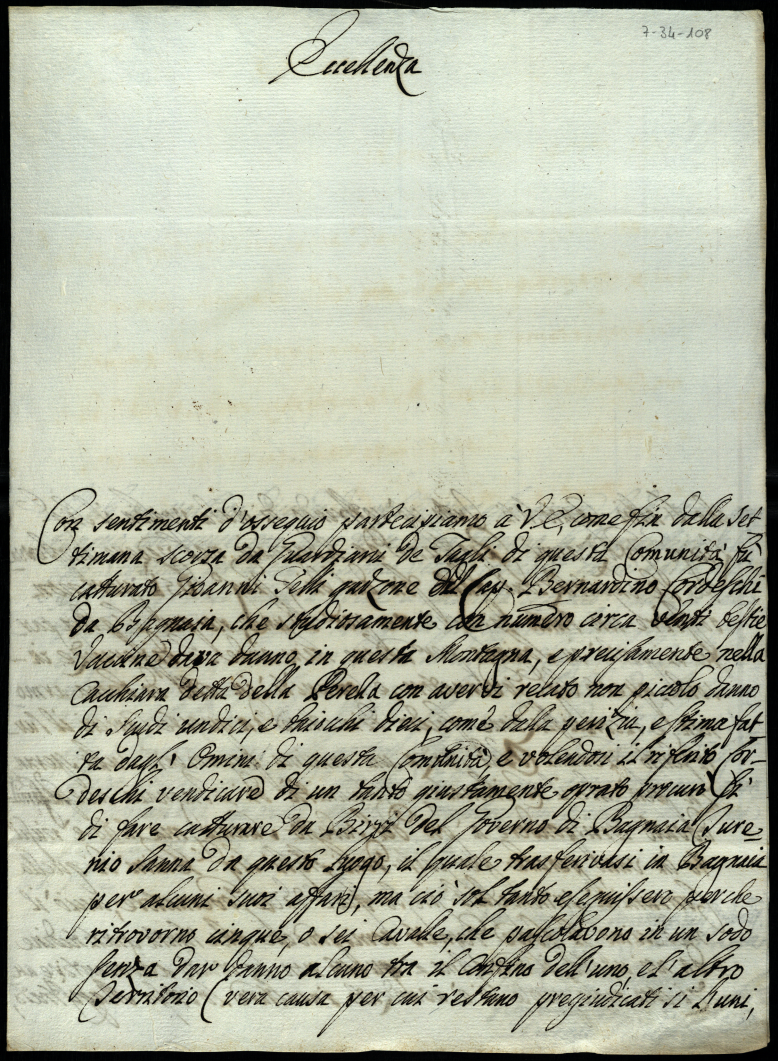 7-34-108
Eccellenza
Con sentimenti d'ossequio partecipiamo a V. E. come fin dalla set
timana scorsa da Guardiani de Tagli di questa Comunità fù
catturato Giovanni Felli garzone del Cap. Bernardino Cordeschi
da Bagnaia, che studiosamente con numero circa venti bestie
Vaccine dava danno, in questa Montagna, e precisamente nella
Cacchiara detta della Perella con avervi recato non piccolo danno
di scudi undici, e baiocchi dieci, com'è dalla perizia, e stima fat
ta dagl' Omini di questa Comunità, e volendosi il riferito Cor-
deschi vendicare di un tanto giustamente oprato procurò
di fare catturare da Birri del Governo di Bagnaia
nio Sanna da questo Luogo, il quale trasferivasi in Bagnaia
per alcuni suoi affari, ma ciò sol tanto eseguissero perche
ritrovorno cinque, o sei Cavalle, che pascolavono in un sodo
senza dar danno alcuno tra il Confino dell'uno, e l'altro
Territorio (vera causa per cui restano pregiudicati si l'uni,